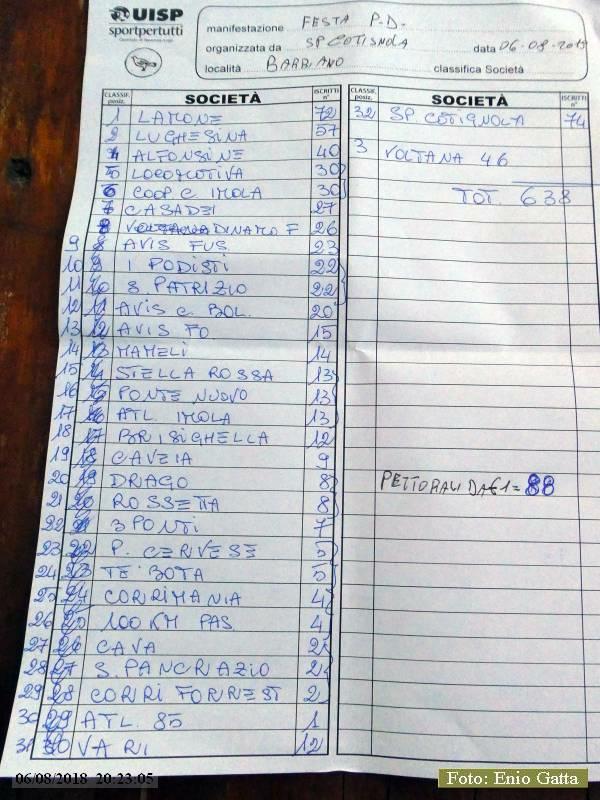 UISP
sportpertutti
manifestazione FESTA P.D.
organizzata da SP COTIGNOLA data 06-08-2018
località BARBIANO classifica Società
CLASSIF. posiz. SOCIETÀ ISCRITTI n°
1 LAMONE 72
2 LUGHESINA 57
4 ALFONSINE 40
5 LOCOMOTIVA 30
6 COOP C. IMOLA 30
7 CASADEI 27
8 DINAMO F 26
9 8 AVIS FUS 23
10 9 I PODISTI 22
11 10 S PATRIZIO 22
12 11 AVIS C. BOL. 20
13 12 AVIS FO 15
14 13 MAMELI 14
15 14 STELLA ROSSA 13
16 15 PONTE NUOVO 13
17 16 ATL. IMOLA 13
18 17 BRISIGHELLA 12
19 18 CAVEIA 9
20 19 DRAGO 8
21 20 ROSSETTA 8
22 21 3 PONTI 7
23 22 P. CERVESE 5
24 23 TE BOTA 5
25 24 CORRIMANIA 4
26 25 100 KM PAS 4
27 26 CAVA 2
28 27 S. PANCRAZIO 2
29 28 CORRI FORREST 2
30 29 ATL. 85 1
31 30 VARI 12
CLASSIF. posiz. SOCIETÀ ISCRITTI n°
32 SP COTIGNOLA 74
3 VOLTANA 46
TOT. 638
PETTORALI DA €1= 88
06/08/2018 20:23:05
Foto: Enio Gatta